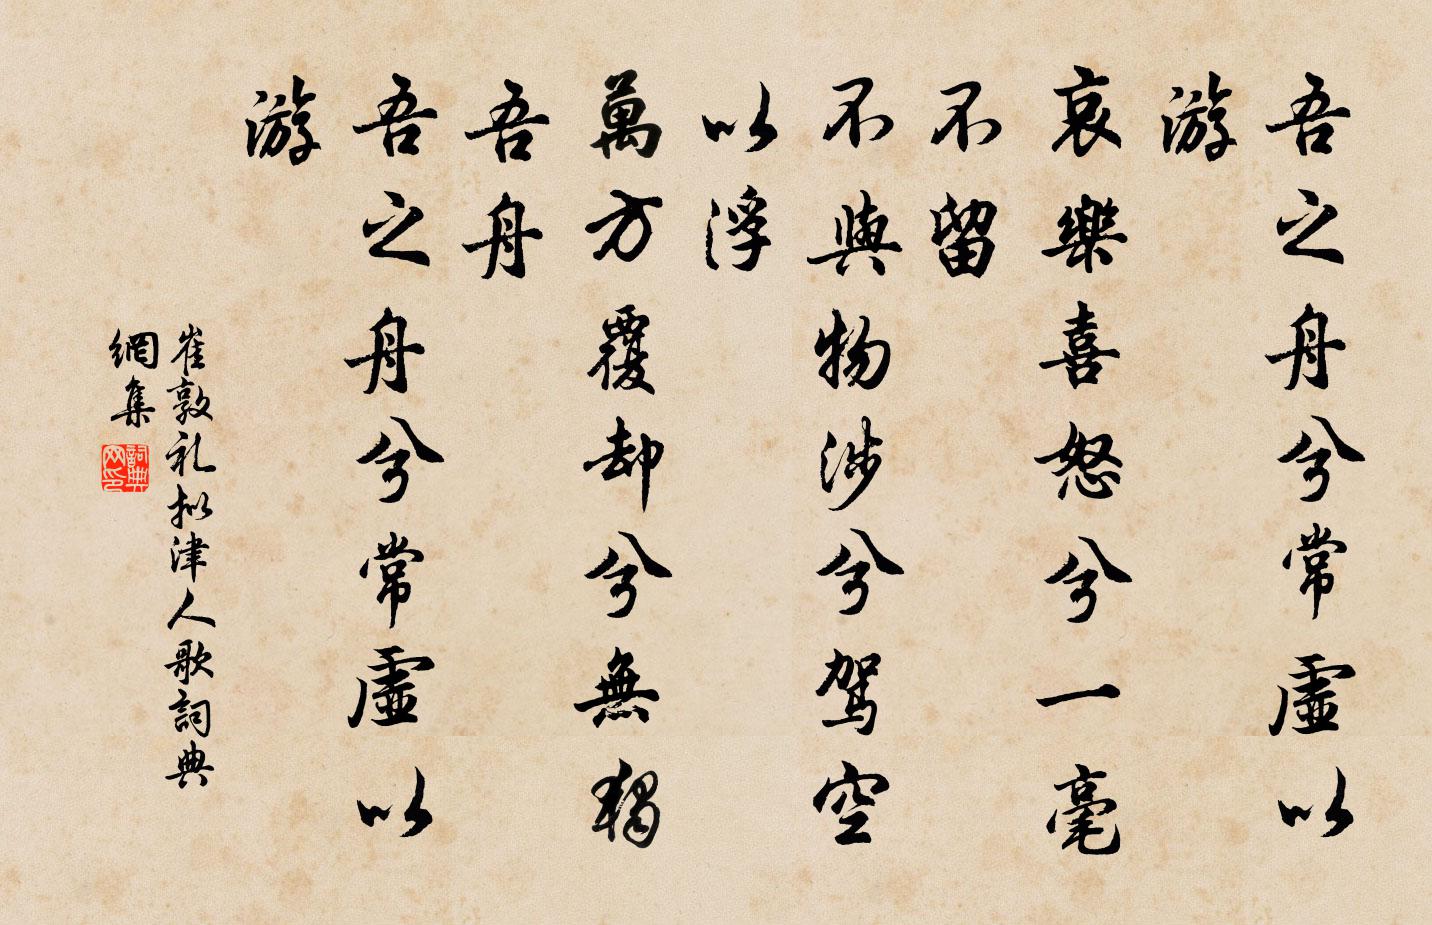 吾之舟兮常虛以
游
哀樂喜怒兮一毫
不留
不與物涉兮駕空
以浮
萬方覆却兮無獨
吾舟
吾之舟兮常虛以
游
崔敦礼拟津人歌詞典
網集
詞典
网印